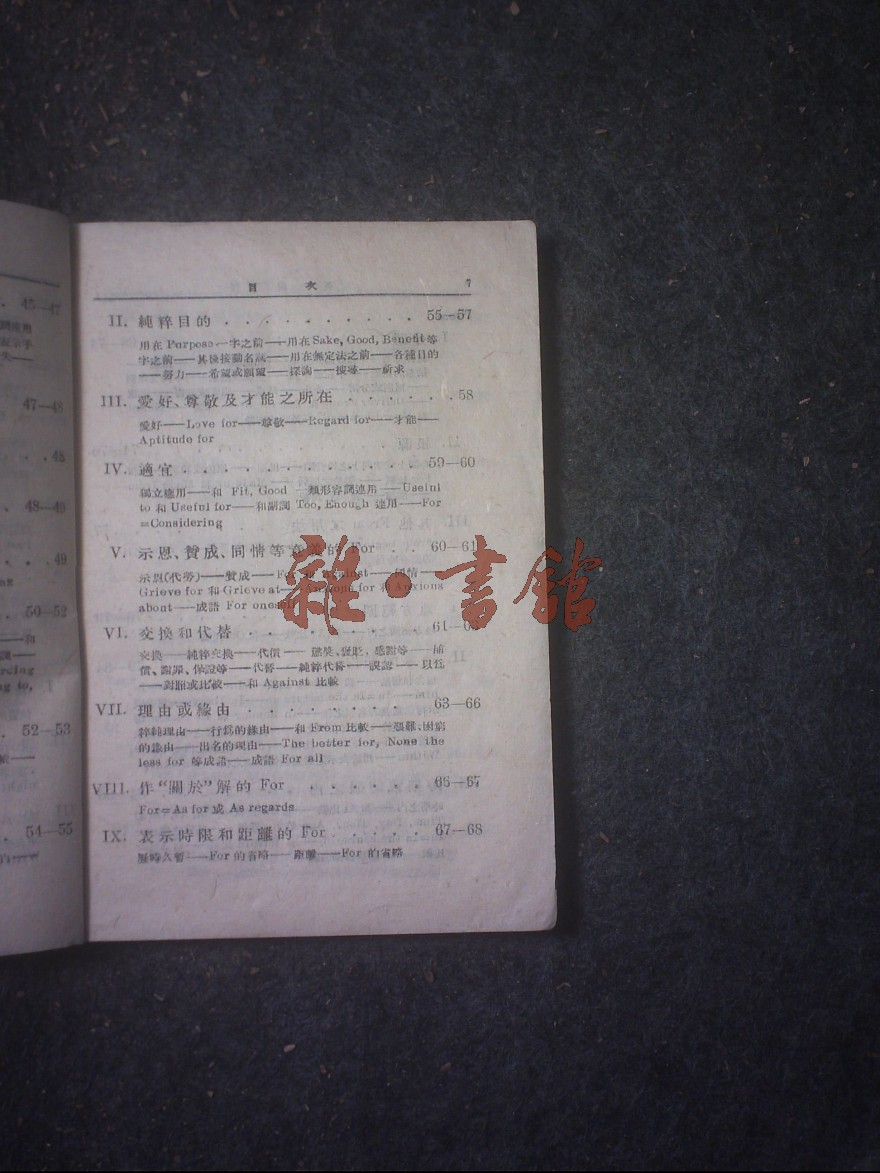 45—47
47—48
48—49
49
50—52
52—53
54—55
目 次 7
II. 純粹目的 . . . . . . . . . . 55—57
用在 Purpose 一字之前——用在 Sake, Good, Benefit 等
字之前——其後接動名詞——用在無定法之前——各種目的
——努力——希望或願望——探詢——搜尋——祈求
III. 愛好、尊敬及才能之所在 . . . . . . . 58
愛好——Love for——尊敬——Regard for——才能——
Aptitude for
IV. 適宜 . . . . . . . . . . . . 59—60
獨立應用——和 Fit, Good 一類形容詞連用——Useful
to 和 Useful for——和副詞 Too, Enough 連用——For
=Considering
V. 示恩、贊成、同情等意義的 For . . . 60—61
示恩(代勞)——贊成——For 和 Against——同情——
Grieve for 和 Grieve at——Anxious for 和 Anxious
about——成語 For oneself
VI. 交換和代替 . . . . . . . . . 61—
交換——純粹交換——代價——懲獎、褒貶、感謝等——補
償、謝罪、保證等——代替——純粹代替——誤認——以爲
——對照或比較——和 Against 比較
VII. 理由或緣由 . . . . . . . . 63—66
粹純理由——行爲的緣由——和 From 比較——艱難、困窮
的緣由——出名的理由——The better for, None the
less for 等成語——成語 For all
VIII. 作“關於”解的 For . . . . . . 66—67
For=As for 或 As regards
IX. 表示時限和距離的 For . . . . . 67—68
歷時久暫——For 的省略——距離——For 的省略
雜·書館